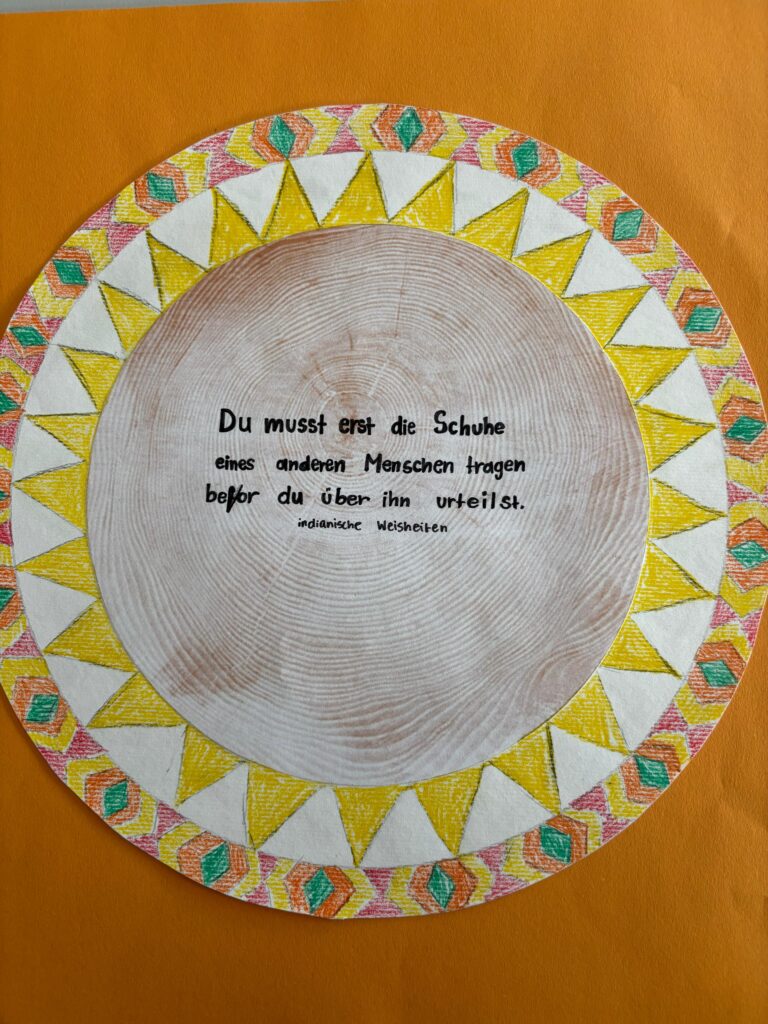 Du musst erst die Schuhe
eines anderen Menschen tragen
bevor du über ihn urteilst.
indianische Weisheiten